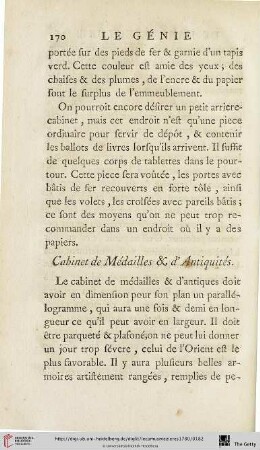 170 LE GÉNIE
portée sur des pieds de fer & garnie d'un tapis
verd. Cette couleur est amie des yeux ; des
chaises & des plumes, de l'encre & du papier
sont le surplus de l'emmeublement.
On pourroit encore désirer un petit arriere-
cabinet, mais cet endroit n'est qu'une piece
ordinaire pour servir de dépôt, & contenir
les ballots de livres lorsqu'ils arrivent. Il suffit
de quelques corps de tablettes dans le pour-
tour. Cette piece sera voûtée, les portes avec
bâtis de fer recouverts en forte tôle, ainsi
que les volets, les croisées avec pareils bâtis ;
ce sont des moyens qu'on ne peut trop re-
commander dans un endroit où il y a des
papiers.
Cabinet de Médailles & d'Antiquités.
Le cabinet de médailles & d'antiques doit
avoir en dimension pour son plan un parallé-
logramme, qui aura une fois & demi en lon-
gueur ce qu'il peut avoir en largeur. Il doit
être parqueté & plafonéon ne peut lui donner
un jour trop sévere, celui de l'Orient est le
plus favorable. Il y aura plusieurs belles ar-
moires artistement rangées, remplies de pe-
UNIVERSITÄTS-
BIBLIOTHEK
HEIDELBERG
© Universitätsbibliothek Heidelberg
The Getty